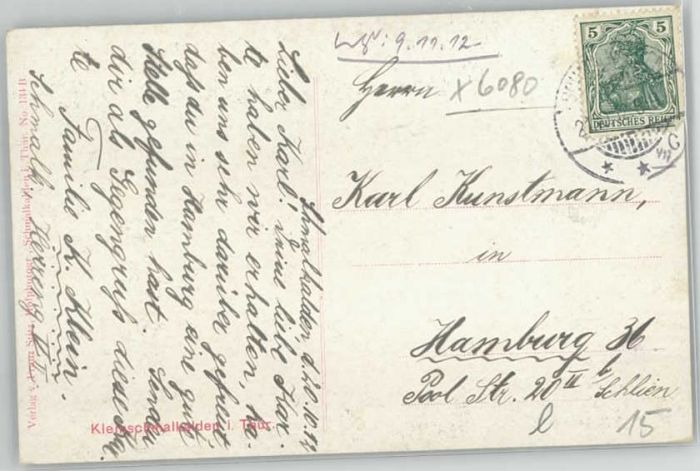 Schmalkalden, d. 20.10.12
Lieber Karl! Deine liebe Kar-
te haben wir erhalten, ha-
ben uns sehr darüber gefreut
daß du in Hamburg eine gute
Stelle gefunden hast. Sende
dir als Gegengruß diese Kar-
te
Familie K. Klein.
Schmalk.
9.11.12
Herrn
x 6080
Karl Kunstmann,
in
Hamburg 36
Pool Str. 20 II b/ Schlien
l 15
5 5
DEUTSCHES REICH
Kleinschmalkalden i. Thür.
Schmalkalden i. Thür. No. 134B